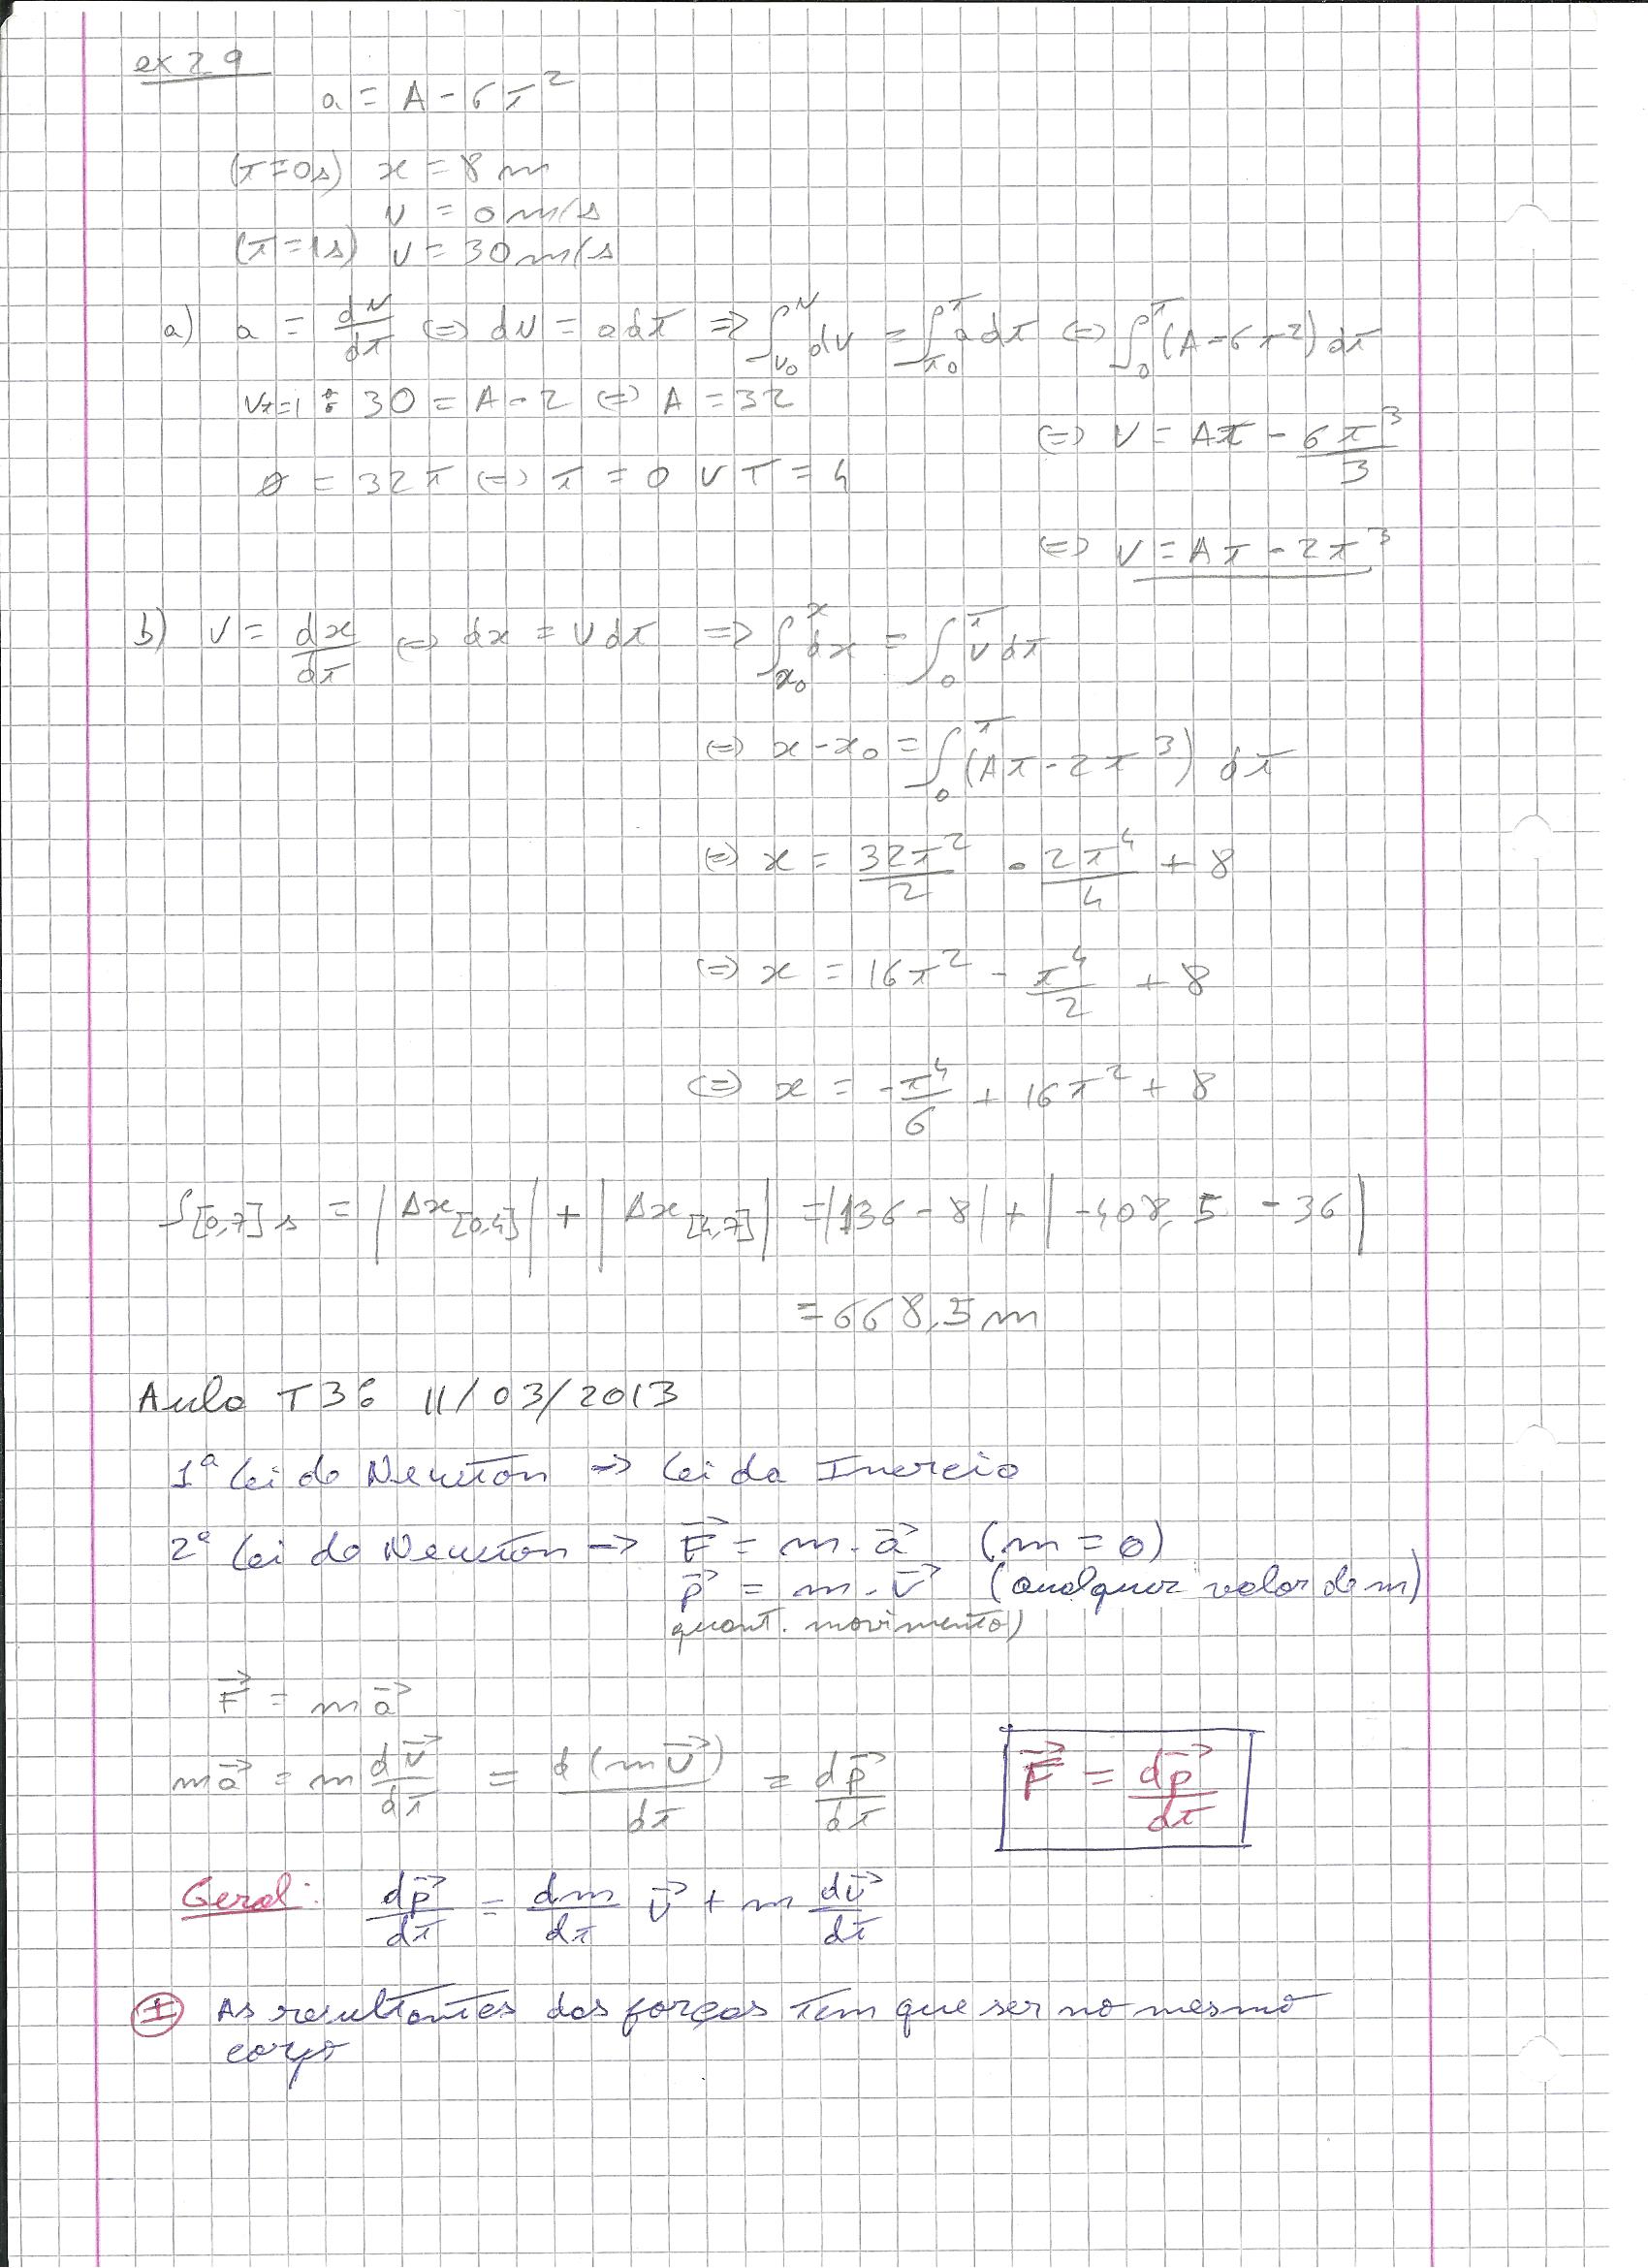 ex 29
a = A - 6t²
(t=0s) x = 8 m
v = 0 m/s
(t=1s) v = 30 m/s
a) a = dv/dt ⇔ dv = a dt ⇒ ∫_{v₀}^{v} dv = ∫_{t₀}^{t} a dt ⇔ ∫_{0}^{t} (A - 6t²) dt
v_{t=1} : 30 = A - 2 ⇔ A = 32
⇔ v = At - 6t³/3
0 = 32t ⇔ t = 0 ∨ t = 4
⇔ v = At - 2t³
b) v = dx/dt ⇔ dx = v dt ⇒ ∫_{x₀}^{x} dx = ∫_{0}^{t} v dt
⇔ x - x₀ = ∫_{0}^{t} (At - 2t³) dt
⇔ x = 32t²/2 - 2t⁴/4 + 8
⇔ x = 16t² - t⁴/2 + 8
⇔ x = -t⁴/6 + 16t² + 8
S_{[0,7]s} = |Δx_{[0,4]}| + |Δx_{[4,7]}| = |136 - 8| + |-408,5 - 36|
= 668,5 m
Aula T3: 11/03/2013
1ª Lei de Newton → Lei da Inercia
2ª Lei de Newton → F⃗ = m . a⃗ (m = 0)
p⃗ = m . v⃗ (qualquer valor de m)
quant. movimento)
F⃗ = m a⃗
m a⃗ = m dv⃗/dt = d(m v⃗)/dt = dp⃗/dt F⃗ = dp⃗/dt
Geral: dp⃗/dt = dm/dt v⃗ + m dv⃗/dt
As resultantes das forças tem que ser no mesmo
corpo